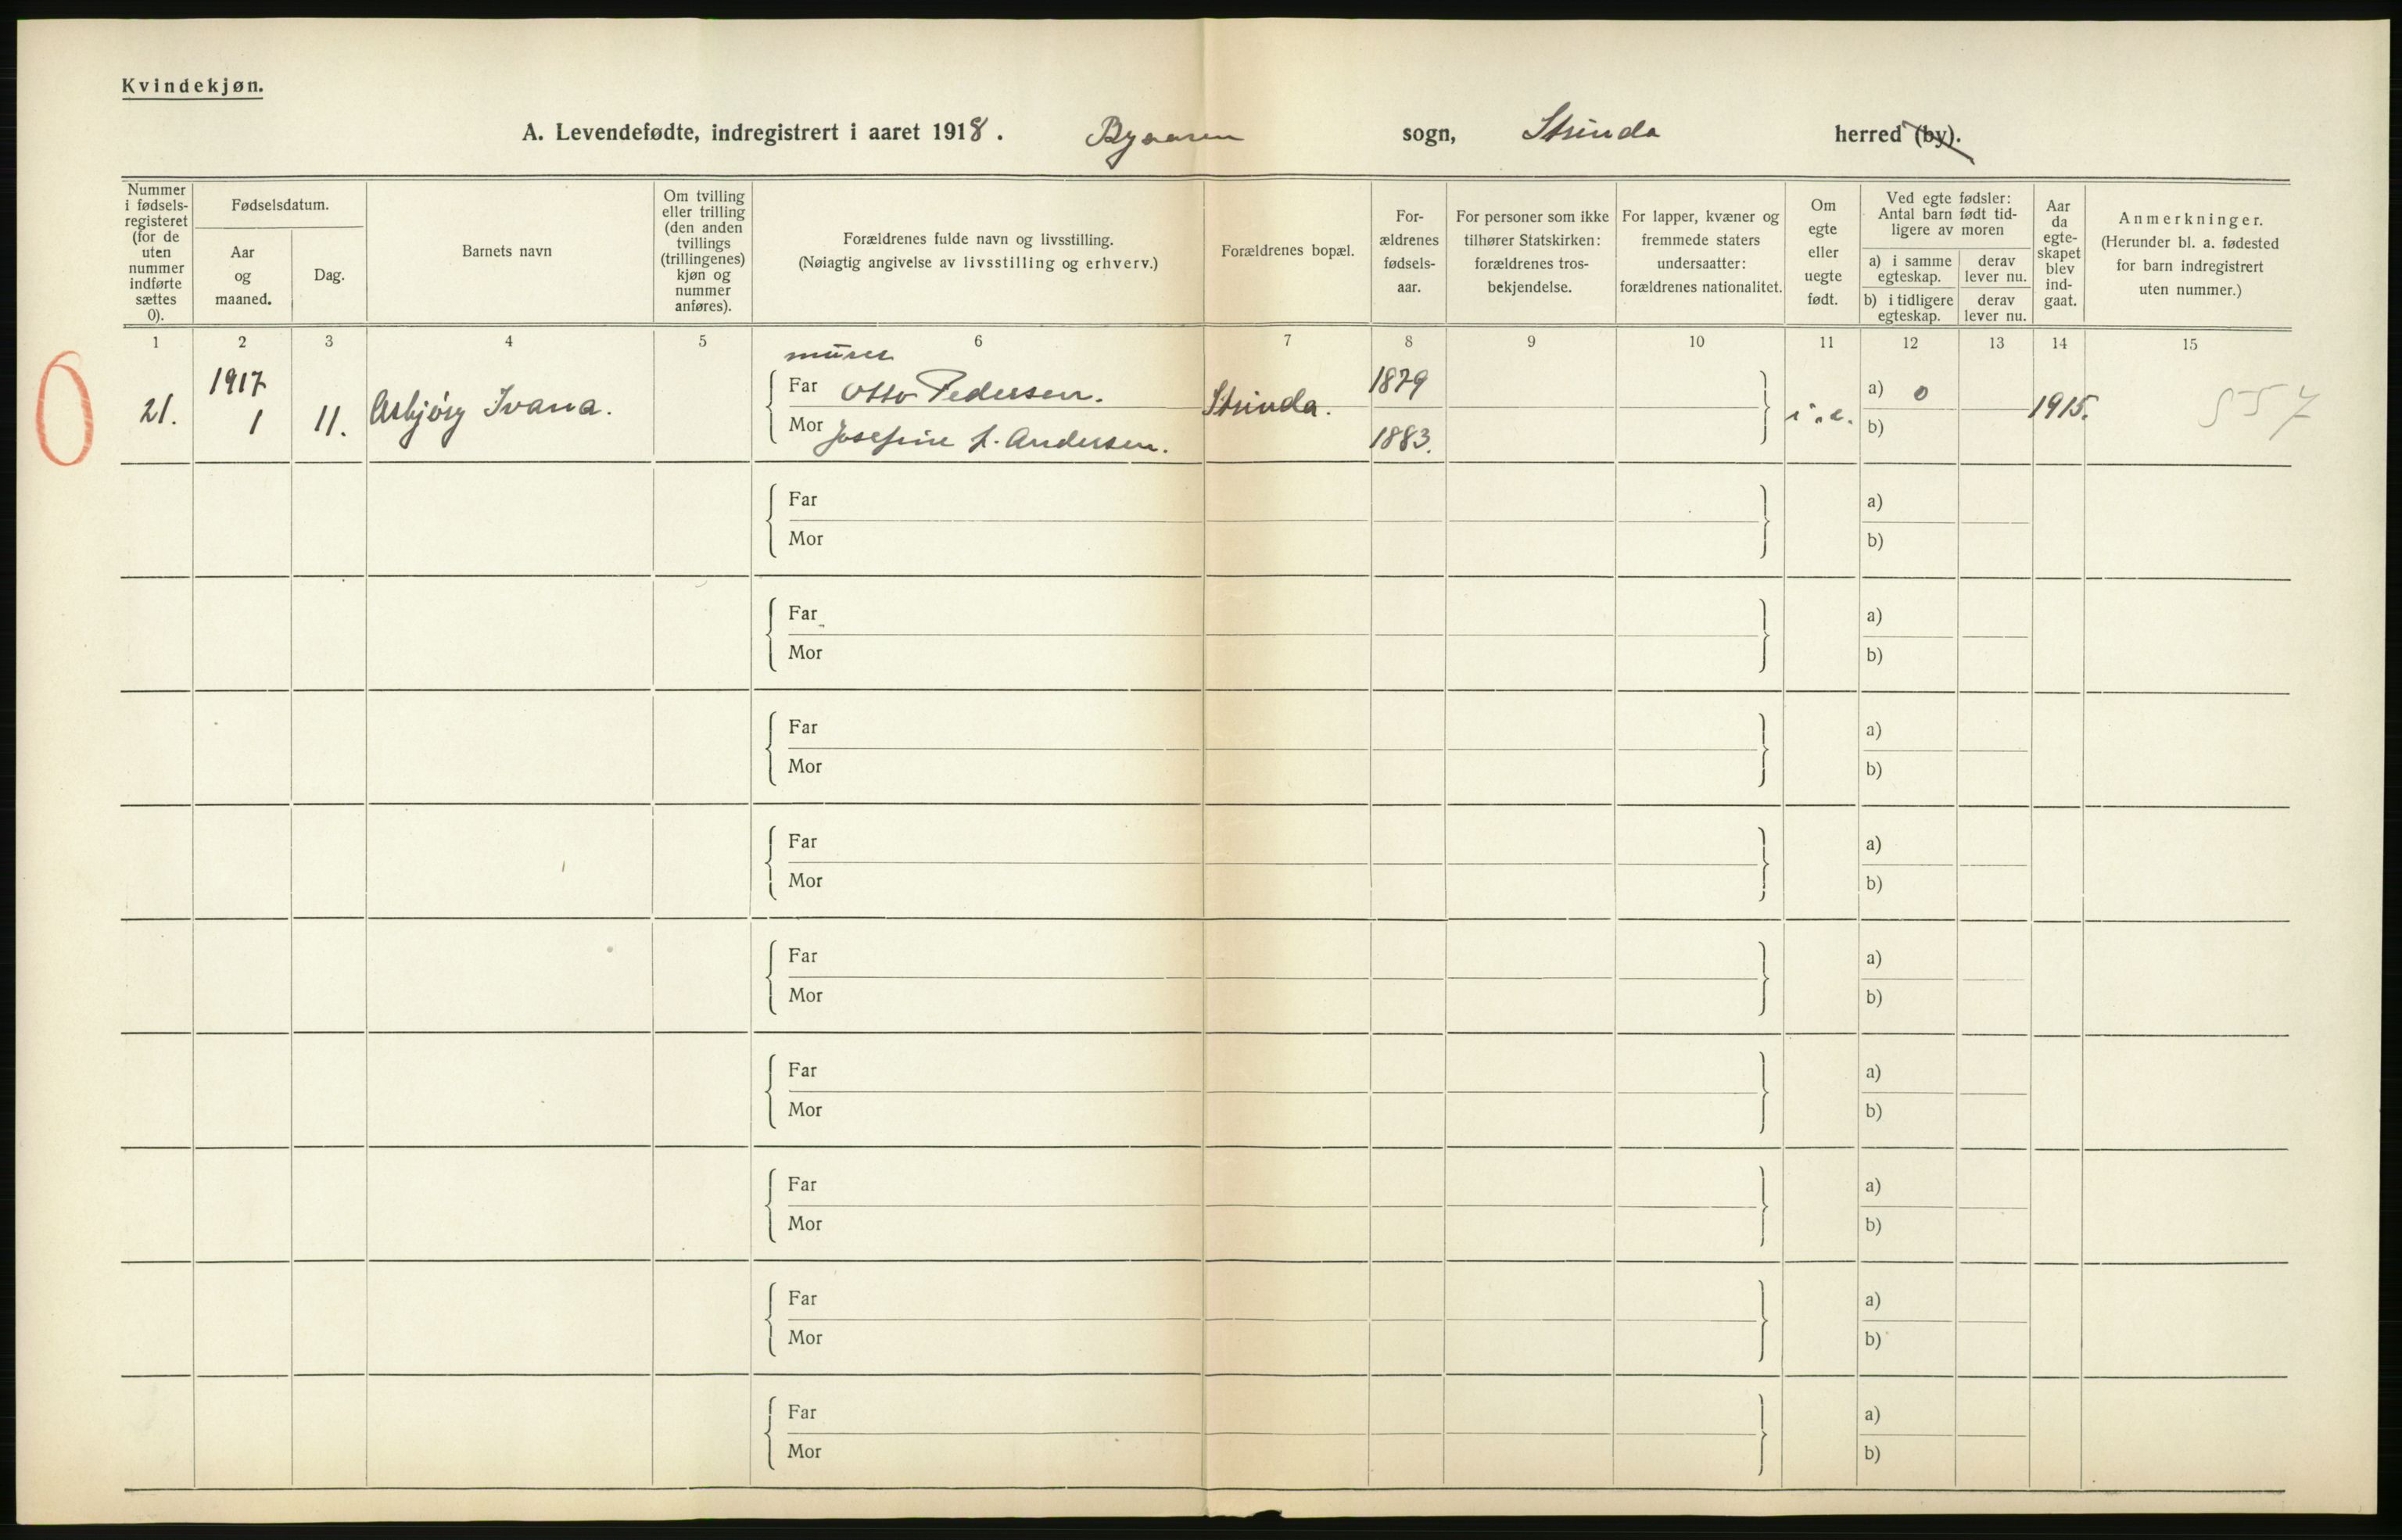 Kvindekjøn.
A. Levendefødte, indregistrert i aaret 1918. Byaasen sogn, Strinda herred (by).
Nummer i fødsels-registeret (for de uten nummer indførte sættes 0).
Fødselsdatum.
Aar og maaned.
Dag.
Barnets navn
Om tvilling eller trilling (den anden tvillings (trillingenes) kjøn og nummer anføres).
Forældrenes fulde navn og livsstilling.
(Nøiagtig angivelse av livsstilling og erhverv.)
Forældrenes bopæl.
For-ældrenes fødsels-aar.
For personer som ikke tilhører Statskirken: forældrenes tros-bekjendelse.
For lapper, kvæner og fremmede staters undersaatter: forældrenes nationalitet.
Om egte eller uegte født.
Ved egte fødsler: Antal barn født tid-ligere av moren
a) i samme egteskap.
derav lever nu.
b) i tidligere egteskap.
derav lever nu.
Aar da egte-skapet blev ind-gaat.
Anmerkninger.
(Herunder bl. a. fødested for barn indregistrert uten nummer.)
1 2 3 4 5 6 7 8 9 10 11 12 13 14 15
0
murer
21. 1917 1 11. Asbjörg Ivana. Far Otto Pedersen. Strinda. 1879 i.e. a) 0 1915. 557
Mor Josefine L. Andersen. 1883. b)
Far a)
Mor b)
Far a)
Mor b)
Far a)
Mor b)
Far a)
Mor b)
Far a)
Mor b)
Far a)
Mor b)
Far a)
Mor b)
Far a)
Mor b)
Far a)
Mor b)